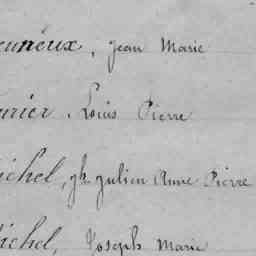 eunéux, Jean Marie
urier, Louis Pierre
ichel, Julien Anne Pierre
ichel, Joseph Marie